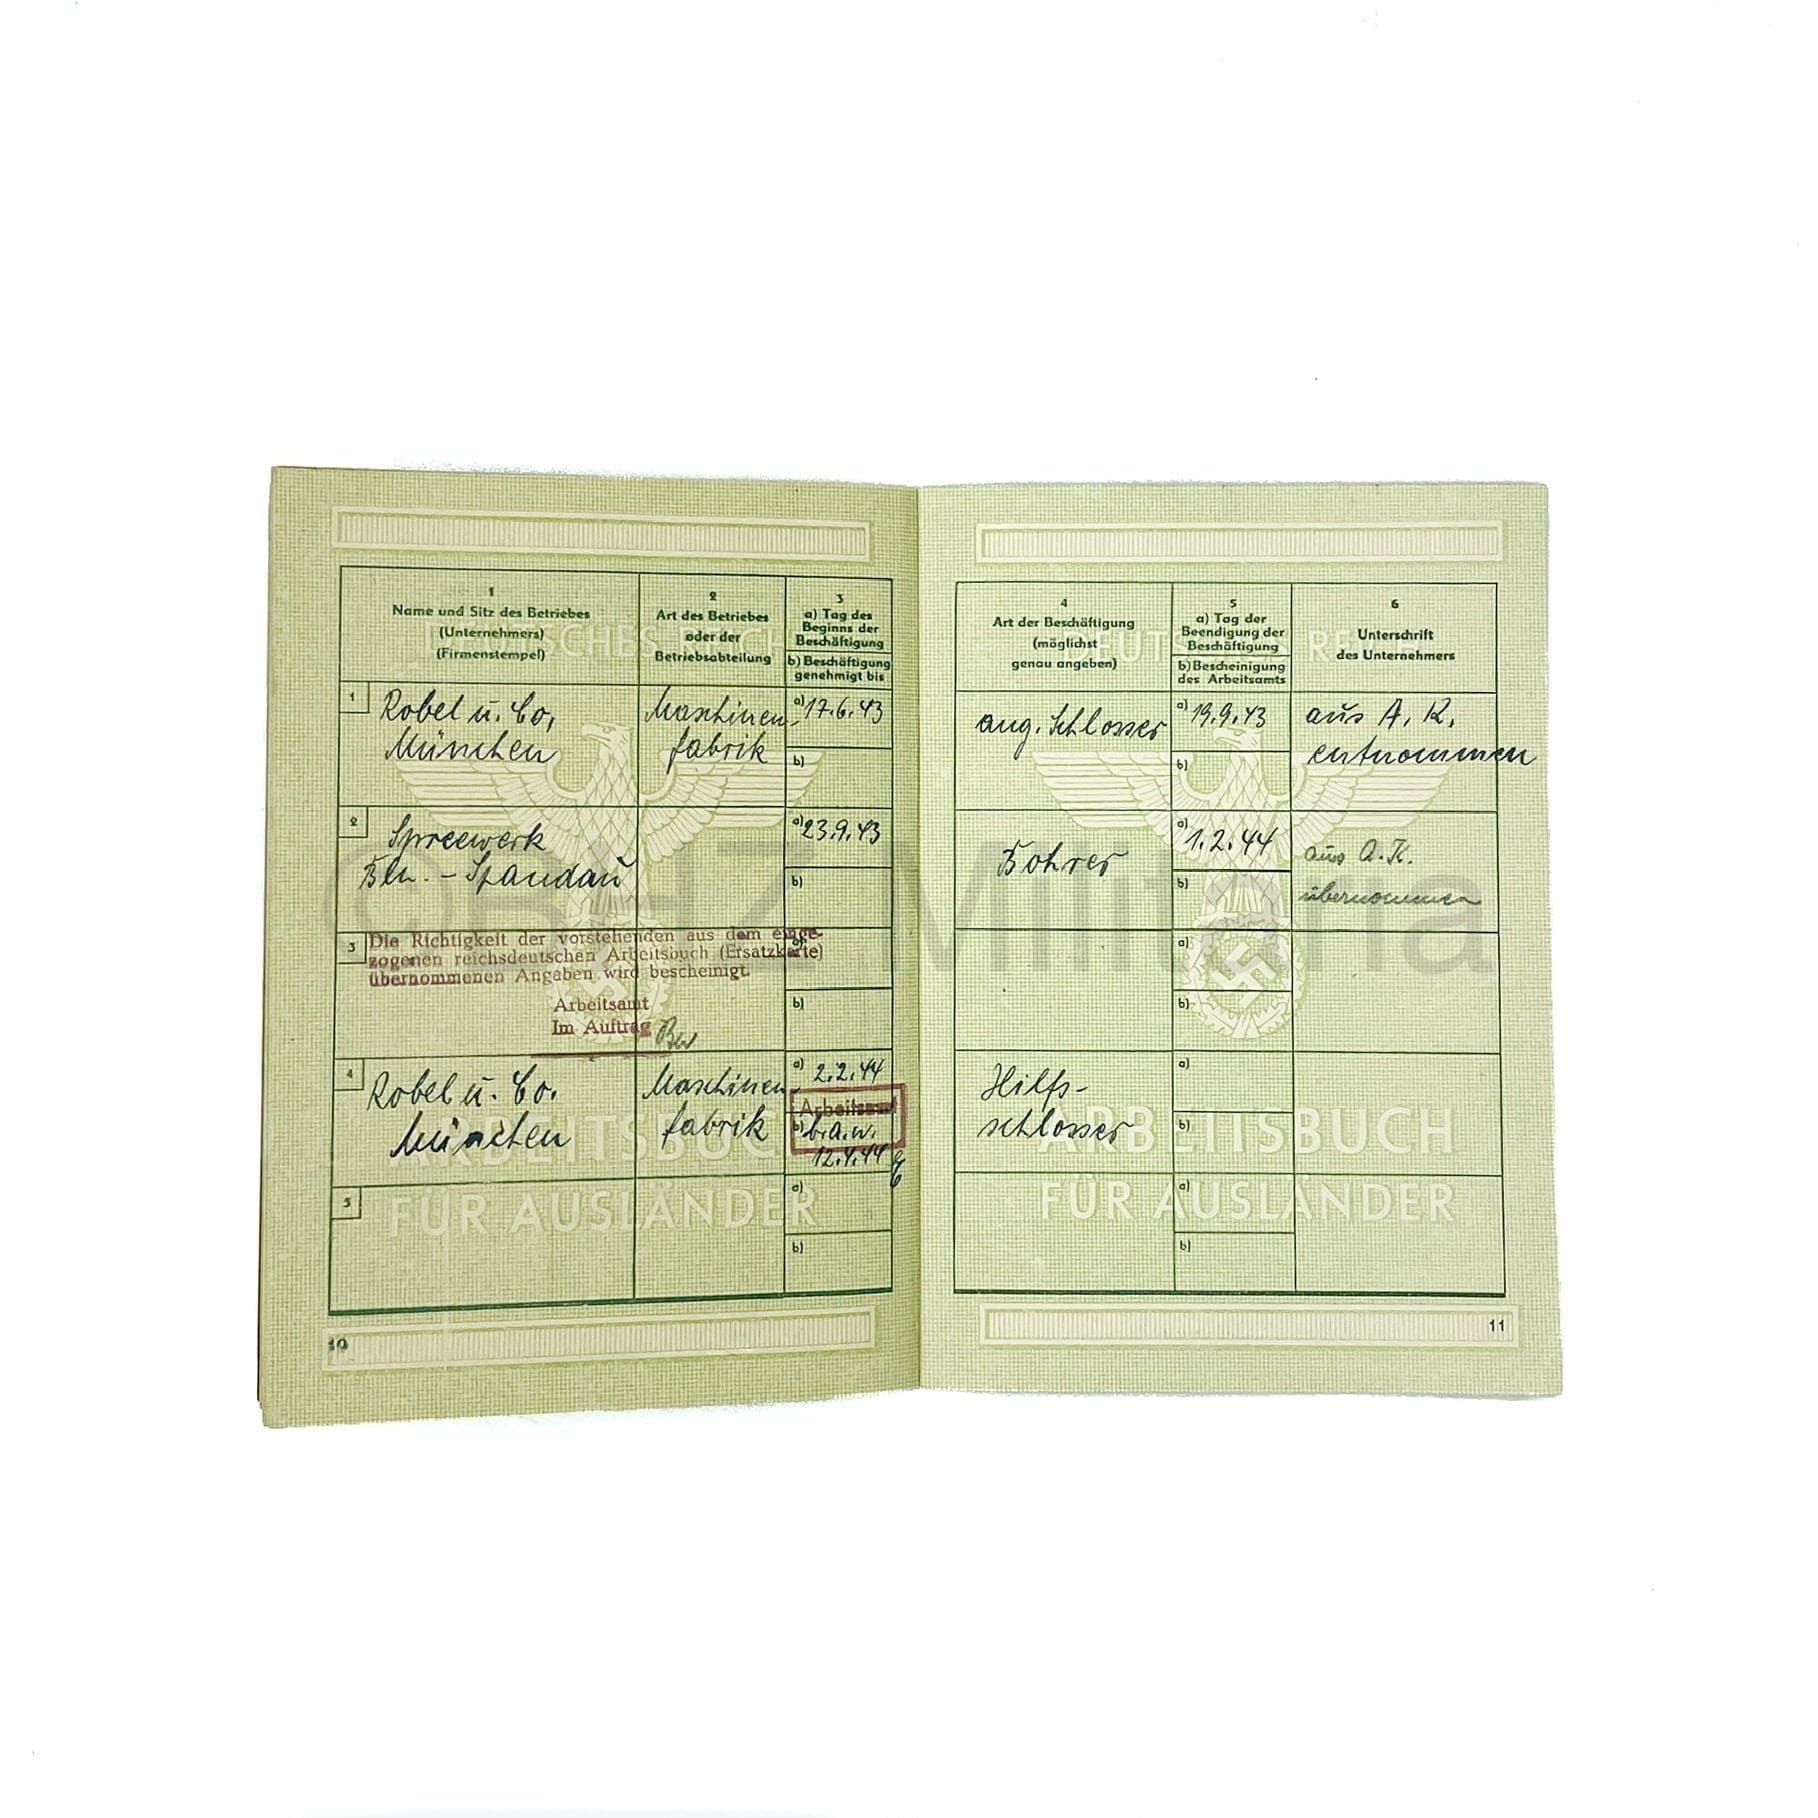 DEUTSCHES REICH
1
Name und Sitz des Betriebes
(Unternehmers)
(Firmenstempel)
2
Art des Betriebes
oder der
Betriebsabteilung
3
a) Tag des
Beginns der
Beschäftigung
b) Beschäftigung
genehmigt bis
1
Robel u. Co,
München
Maschinen-
fabrik
a) 17.6.43
b)
2
Spreewerk
Bln. - Spandau
a) 23.9.43
b)
3
Die Richtigkeit der vorstehenden aus dem einge-
zogenen reichsdeutschen Arbeitsbuch (Ersatzkarte)
übernommenen Angaben wird bescheinigt.
Arbeitsamt
Im Auftrag
a)
b)
4
Robel u. Co.
München
Maschinen-
fabrik
a) 2.2.44
Arbeitsamt
b) b.a.w.
12.4.44
5
a)
b)
ARBEITSBUCH
FÜR AUSLÄNDER
10
DEUTSCHES REICH
4
Art der Beschäftigung
(möglichst
genau angeben)
5
a) Tag der
Beendigung der
Beschäftigung
b) Bescheinigung
des Arbeitsamts
6
Unterschrift
des Unternehmers
ang. Schlosser
a) 19.9.43
b)
aus A. K.
entnommen
Bohrer
a) 1.2.44
b)
aus A.K.
übernommen
a)
b)
Hilfs-
schlosser
a)
b)
a)
b)
ARBEITSBUCH
FÜR AUSLÄNDER
11
©BHZ Militaria